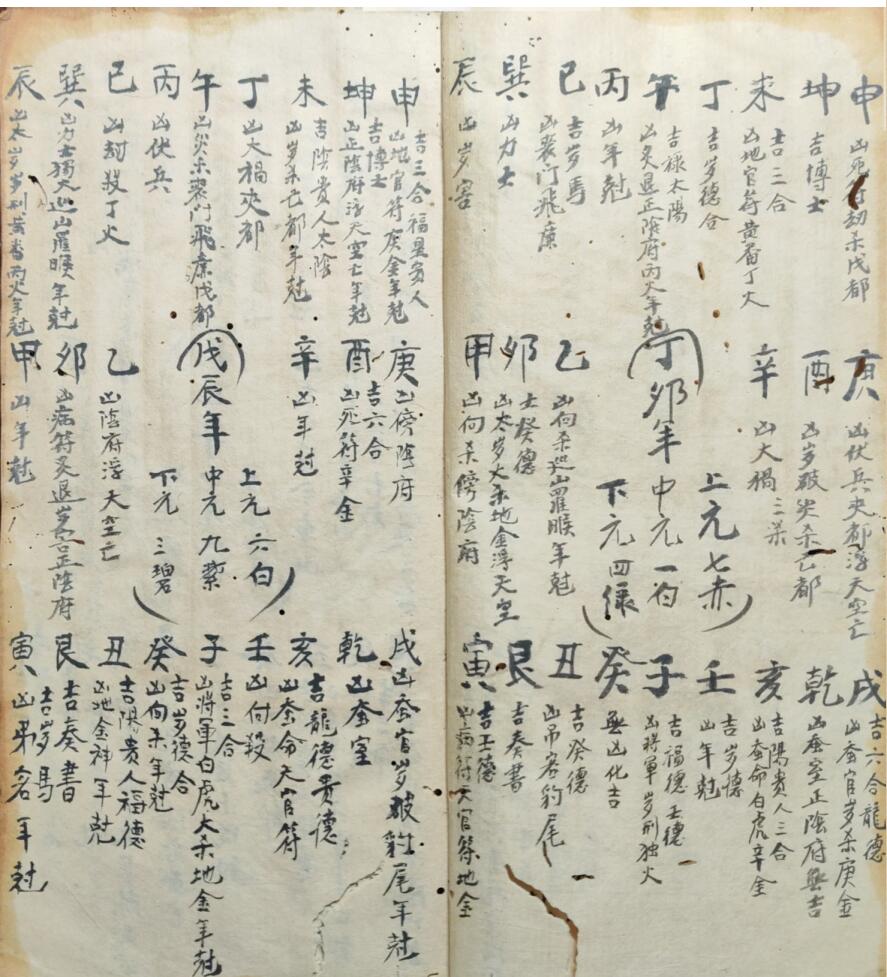 申
凶死符劫杀戊都
坤
吉博士
未
吉三合
凶地官符黄番丁火
丁
吉岁德合
午
吉禄太陽
凶炙退正陰府丙火年尅
丙
凶年尅
巳
吉岁馬
凶喪门飛廉
巽
凶力士
辰
凶岁害
庚
凶伏兵夾都浮天空亡
酉
凶岁破災杀亡都
辛
凶大禍三杀
丁卯年
上元七赤
中元一白
下元四緑
乙
凶向杀巡山羅睺年尅
卯
士癸德
凶太岁大杀地金浮天空
甲
凶向杀傍陰府
戌
吉六合龍德
凶蚕官岁杀庚金
乾
凶蚕室正陰府無吉
亥
吉陽貴人三合
凶蚕命白虎辛金
壬
吉岁德
凶年尅
子
吉福德壬德
凶将軍岁刑独火
癸
無凶化吉
丑
吉癸德
凶吊客豹尾
艮
吉奏書
寅
吉壬德
凶病符天官符地金
申
吉三合福星貴人
凶地官符庚金年尅
坤
吉博士
凶正陰府浮天空亡年尅
未
吉陰貴人太陰
凶岁杀亡都年尅
丁
凶大禍夾都
午
凶災杀喪门飛廉戊都
丙
凶伏兵
巳
凶劫殺丁火
巽
凶力士獨火巡山羅睺年尅
辰
凶太岁岁刑黄番丙火年尅
庚
凶傍陰府
酉
吉六合
凶死符辛金
辛
凶年尅
戊辰年
上元六白
中元九紫
下元三碧
乙
凶陰府浮天空亡
卯
凶病符炙退岁害正陰府
甲
凶年尅
戌
凶蚕官岁破豹尾年尅
乾
凶蚕室
亥
吉龍德貴德
凶蚕命天官符
壬
凶付殺
子
吉三合
凶将軍白虎大杀地金年尅
癸
吉岁德合
凶向杀年尅
丑
吉陽貴人福德
凶地金神年尅
艮
吉奏書
寅
吉岁馬
凶吊客年尅